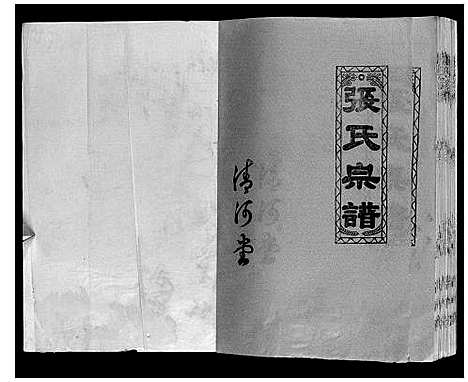 張氏宗譜
清河堂